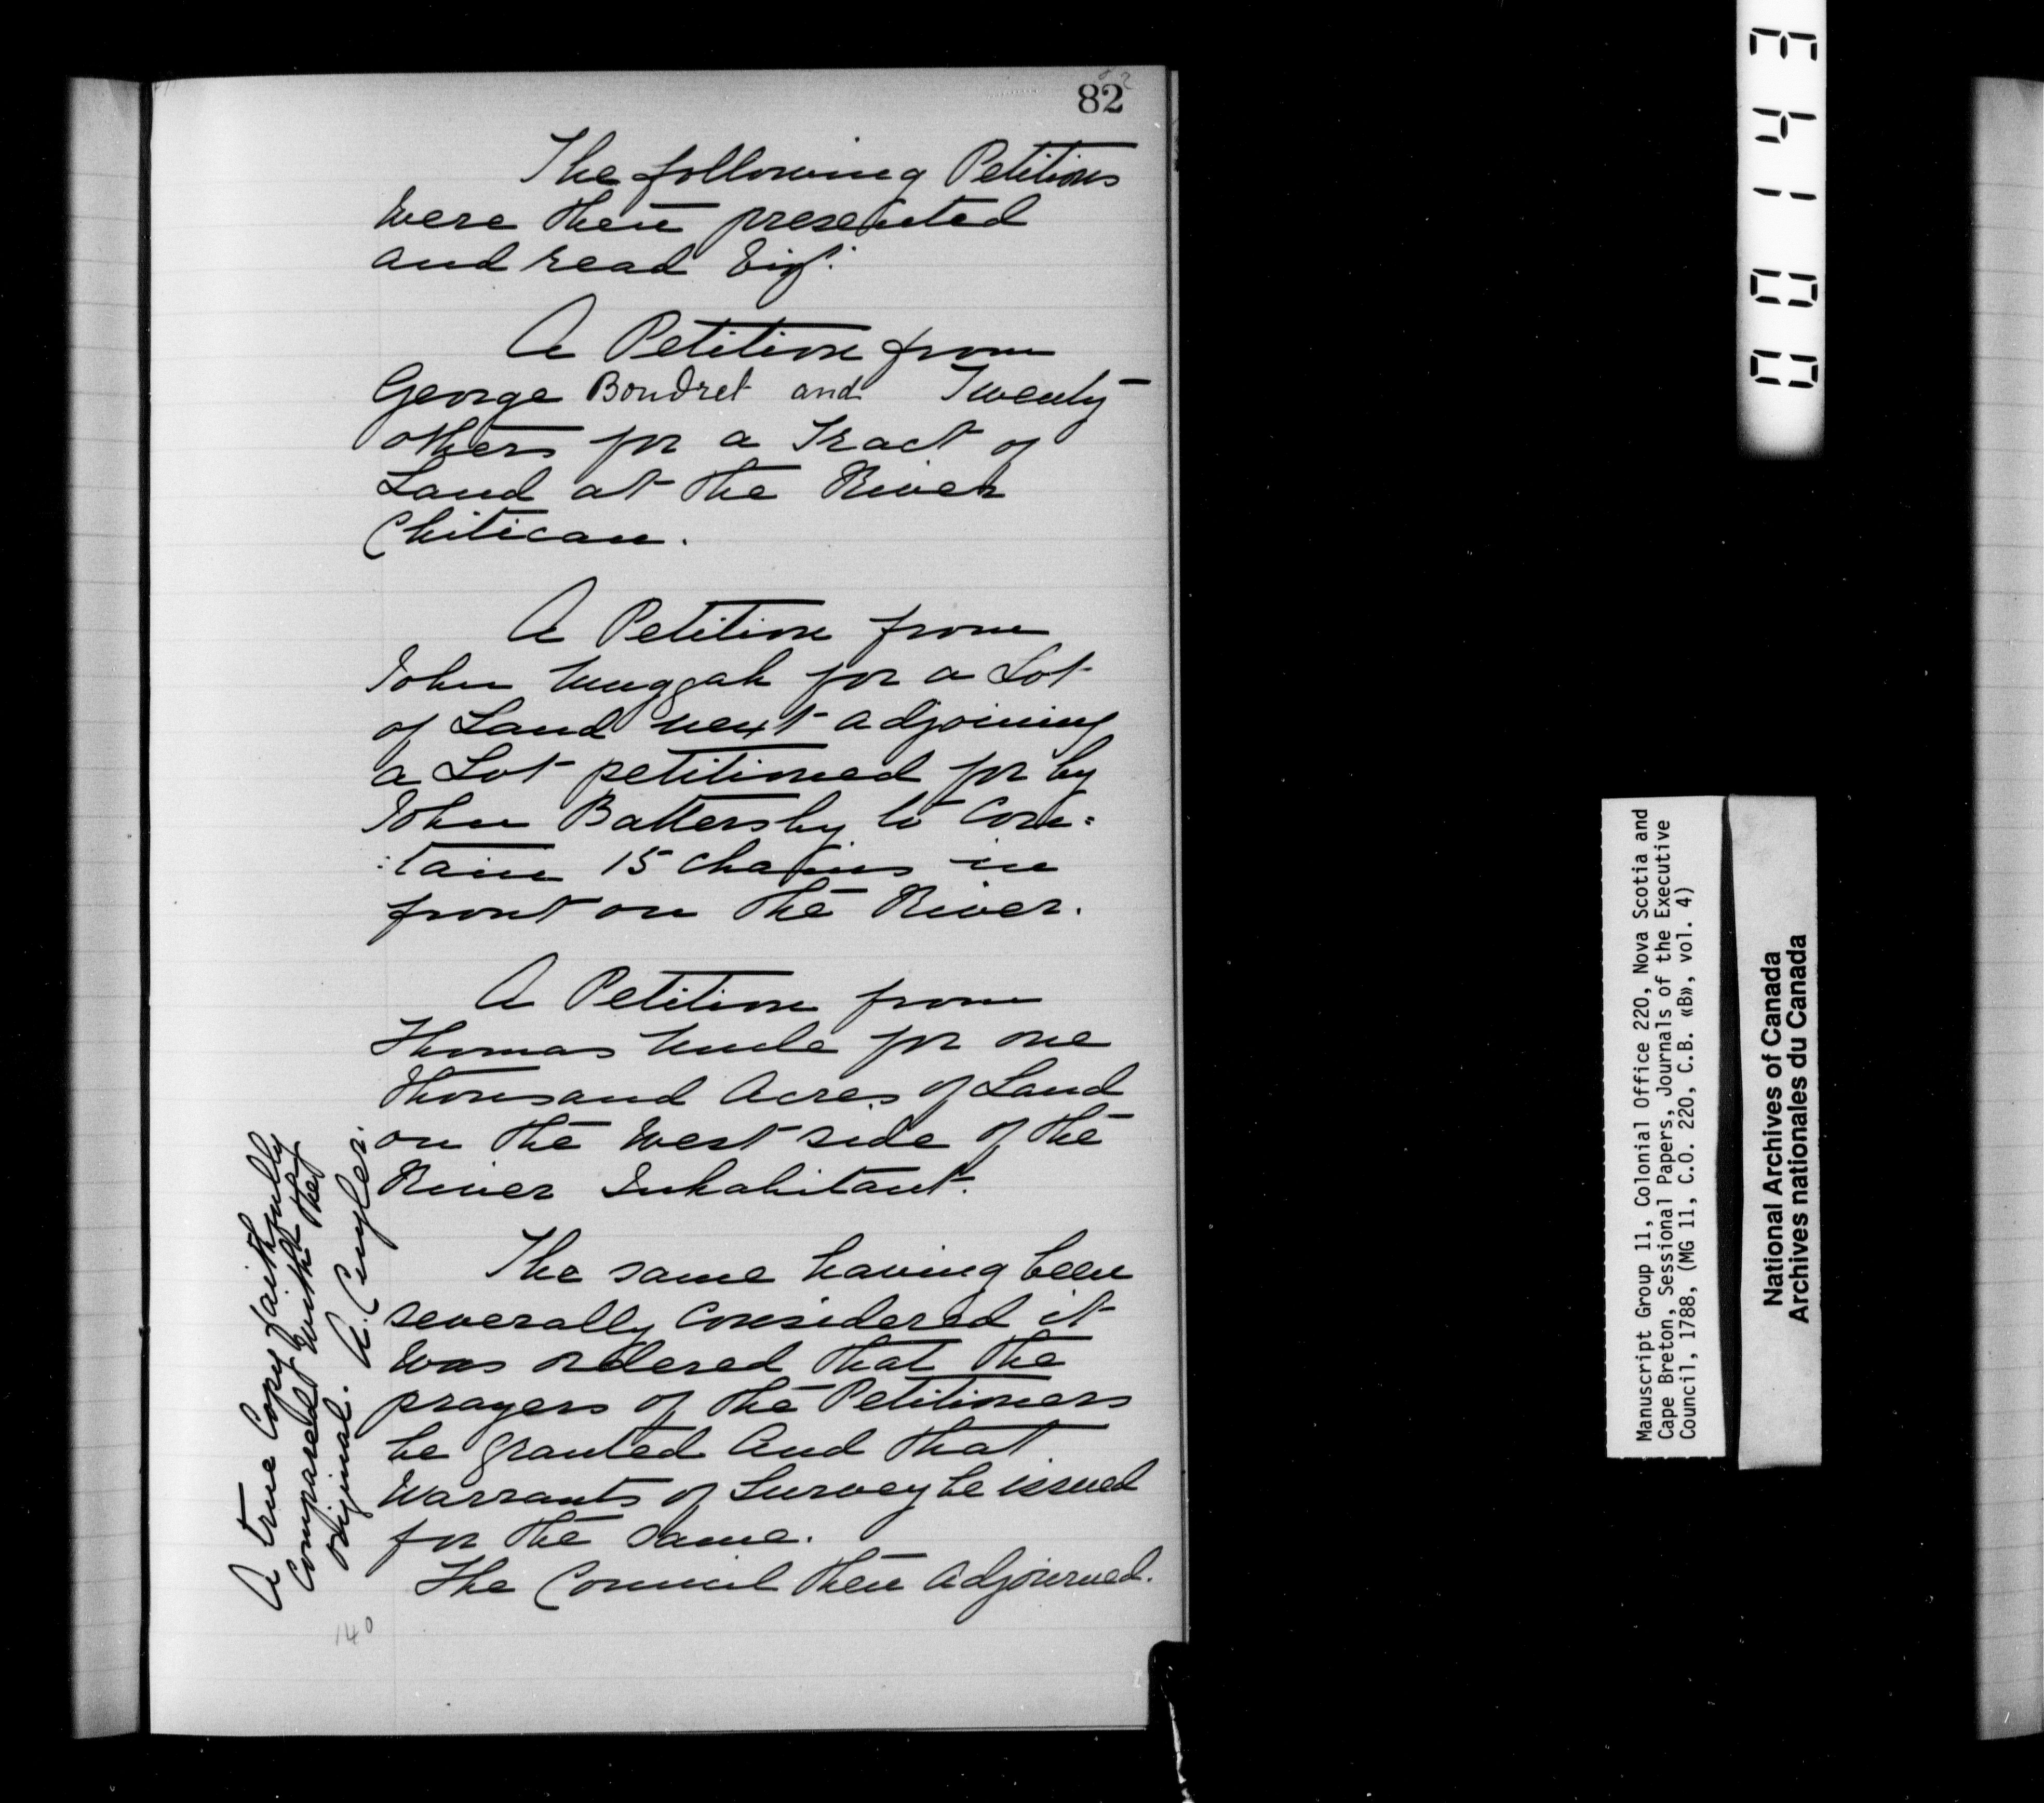 82
The following Petitions
were then presented
and read Viz!
A Petition from
George Boudret and Twenty
others for a Tract of
Land at the River
Chitican.
A Petition from
John Muggah for a Lot
of Land next adjoining
a Lot petitioned for by
John Battersby to Con=
:tain 15 chains in
front on the River.
A Petition from
Thomas for one
thousand Acres of Land
on the West side of the
River Inhabitant.
The same having been
severally Considered it
was ordered that the
prayers of the Petitioners
be granted And that
Warrants of Survey be issued
for the same.
The Council then Adjourned.
A true Copy faithfully
Compared with the
Original. A. Cuyler.
140
0143
Manuscript Group 11, Colonial Office 220, Nova Scotia and
Cape Breton, Sessional Papers, Journals of the Executive
Council, 1788, (MG 11, C.O. 220, C.B. «B», vol. 4)
National Archives of Canada
Archives nationales du Canada